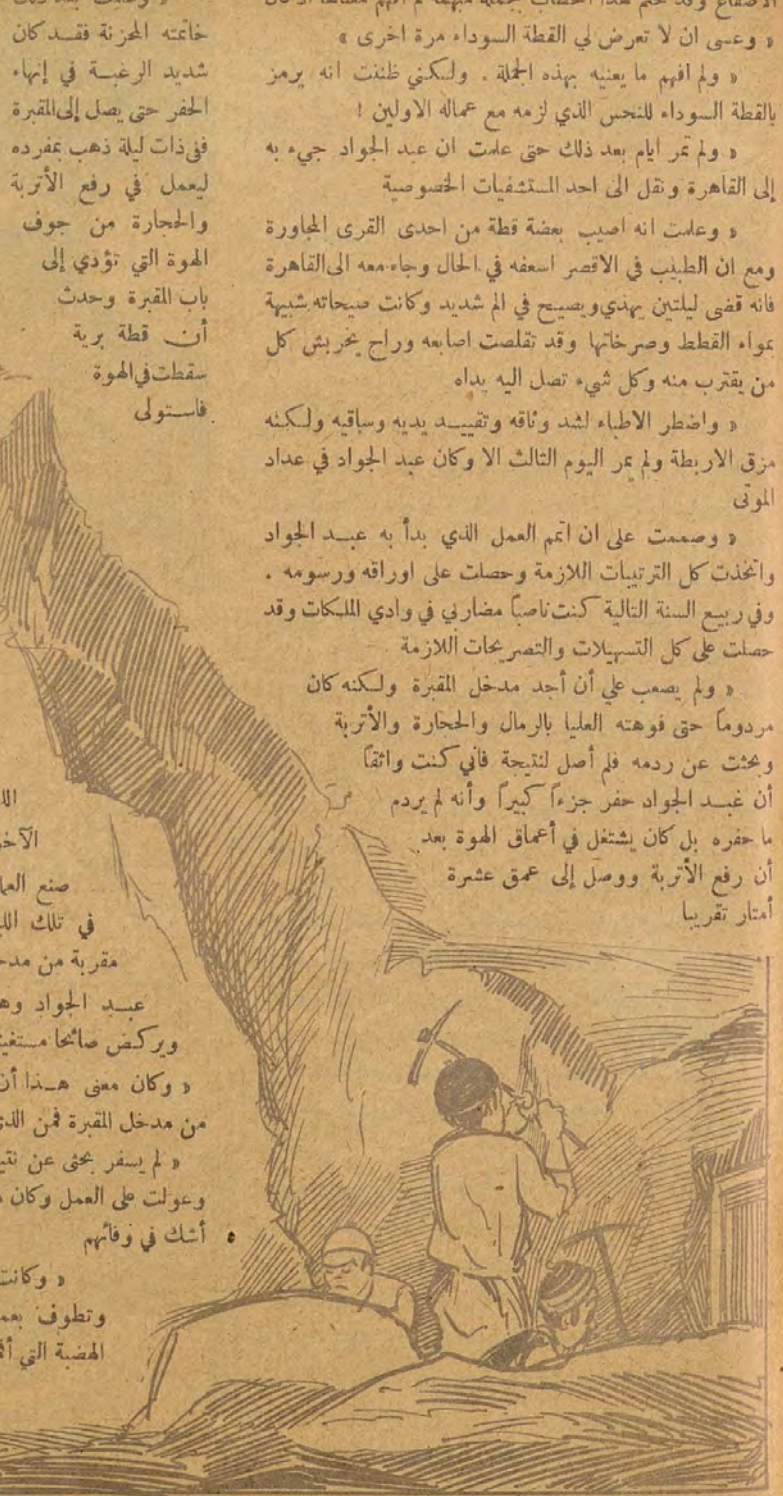 الاصقاع وقد ختم هذا الخطاب بجملة مبهمة لم افهم معناها اذ قال
« وعسى ان لا تعرض لي القطة السوداء مرة اخرى »
« ولم افهم ما يعنيه بهذه الجملة . ولكني ظننت انه يرمز
بالقطة السوداء للنحس الذي لزمه مع عماله الاولين !
« ولم تمر ايام بعد ذلك حتى علمت ان عبد الجواد جيء به
إلى القاهرة ونقل الى احد المستشفيات الخصوصية
« وعلمت انه اصيب بعضة قطة من احدى القرى المجاورة
ومع ان الطبيب في الاقصر اسعفه في الحال وجاء معه الى القاهرة
فانه قضى ليلتين يهذي ويصيح في الم شديد وكانت صيحاته شبيهة
بمواء القطط وصرخاتها وقد تقلصت اصابعه وراح يخربش كل
من يقترب منه وكل شيء تصل اليه يداه
« واضطر الاطباء لشد وثاقه وتقييد يديه وساقيه ولكنه
مزق الاربطة ولم يمر اليوم الثالث الا وكان عبد الجواد في عداد
الموتى
« وصممت على ان اتمم العمل الذي بدأ به عبد الجواد
واتخذت كل الترتيبات اللازمة وحصلت على اوراقه ورسومه .
وفي ربيع السنة التالية كنت ناصباً مضاربي في وادي الملكات وقد
حصلت على كل التسهيلات والتصريحات اللازمة
« ولم يصعب علي أن أجد مدخل المقبرة ولكنه كان
مردوماً حتى فوهته العليا بالرمال والحجارة والأتربة
وبحثت عن ردمه فلم أصل لنتيجة فاني كنت واثقاً
أن عبد الجواد حفر جزءاً كبيراً وأنه لم يردم
ما حفره بل كان يشتغل في أعماق الهوة بعد
أن رفع الأتربة ووصل إلى عمق عشرة
أمتار تقريبا
خاتمته المحزنة فقد كان
شديد الرغبة في إنهاء
الحفر حتى يصل إلى المقبرة
ففي ذات ليلة ذهب بمفرده
ليعمل في رفع الأتربة
والحجارة من جوف
الهوة التي تؤدي إلى
باب المقبرة وحدث
أن قطة برية
سقطت في الهوة
فاستولى
صنع العما
في تلك الل
مقربة من مدخ
عبد الجواد وه
ويركض صائحا مستغيث
« وكان معنى هذا أن
من مدخل المقبرة فمن الذ
« لم يسفر بحثي عن نتي
وعولت على العمل وكان
أشك في وفائهم
« وكانت
وتطوف بعم
الهضبة التي أق